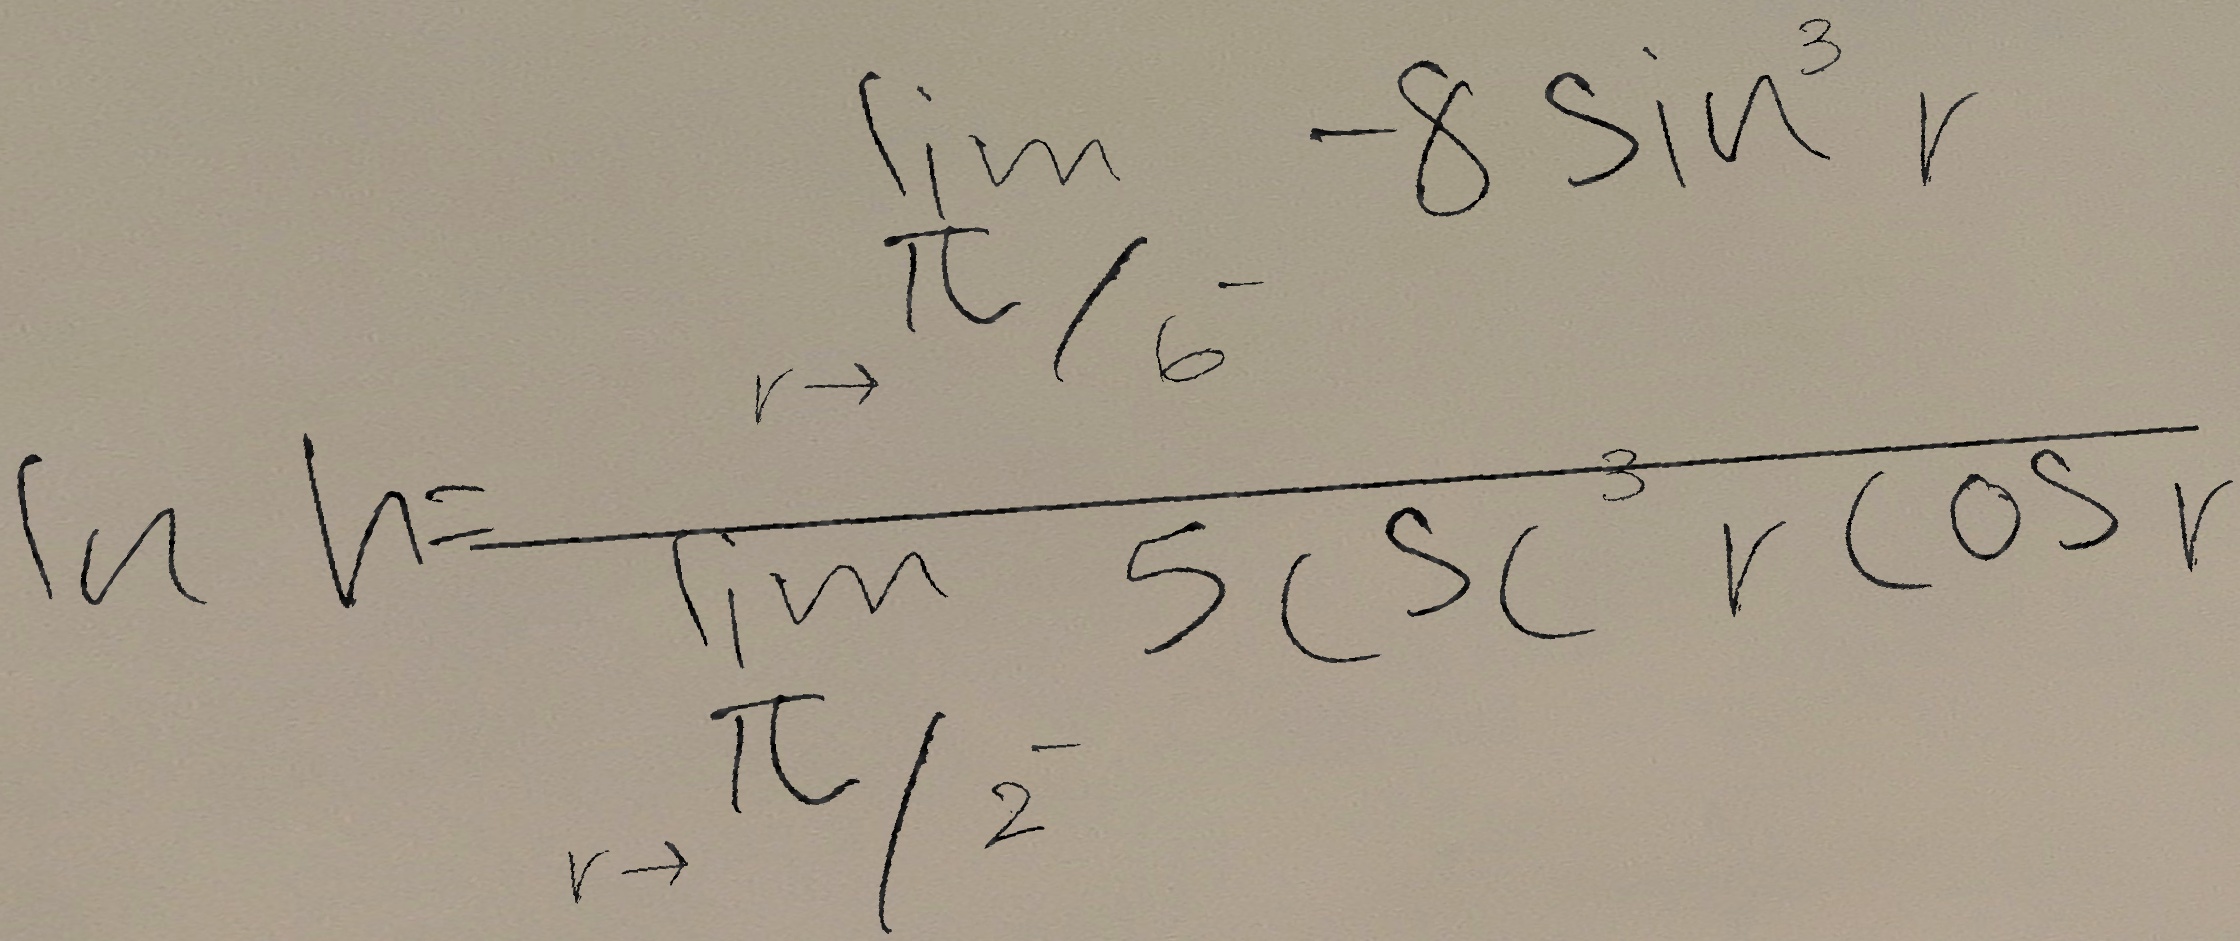 \ln h = \frac{\lim_{r \to \pi/6^-} -8 \sin^3 r}{\lim_{r \to \pi/2^-} 5 \csc^3 r \cos r}